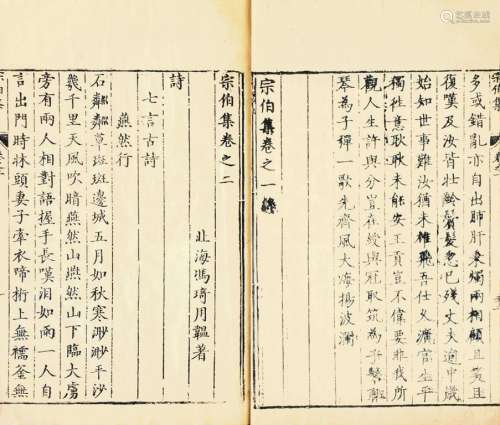 多或錯亂亦出肺肝來燭兩相顧且黃且
復嘆及汝曹壯齡鬢髮忽已殘丈夫適中歲
始知世事難汝猶未飛吾仕久瀕官生平
獨往意耿耿未能安王貢豈不偉要非我所
觀人生許與分豈在綬與冠取筑為子擊
琴為子彈一歌先齊風大海揚波瀾
宗伯集卷之一終
宗伯集卷之二
北海馮琦用韞著
詩
七言古詩
燕然行
石粼粼草斑斑邊城五月如秋寒渺渺平沙
幾千里天風吹暗燕然山燕然山下臨大虜
旁有兩人相對語握手長嘆淚如雨一人自
言出門時抹頭妻子牽衣啼桁上無襦釜無
宗伯集
卷之二